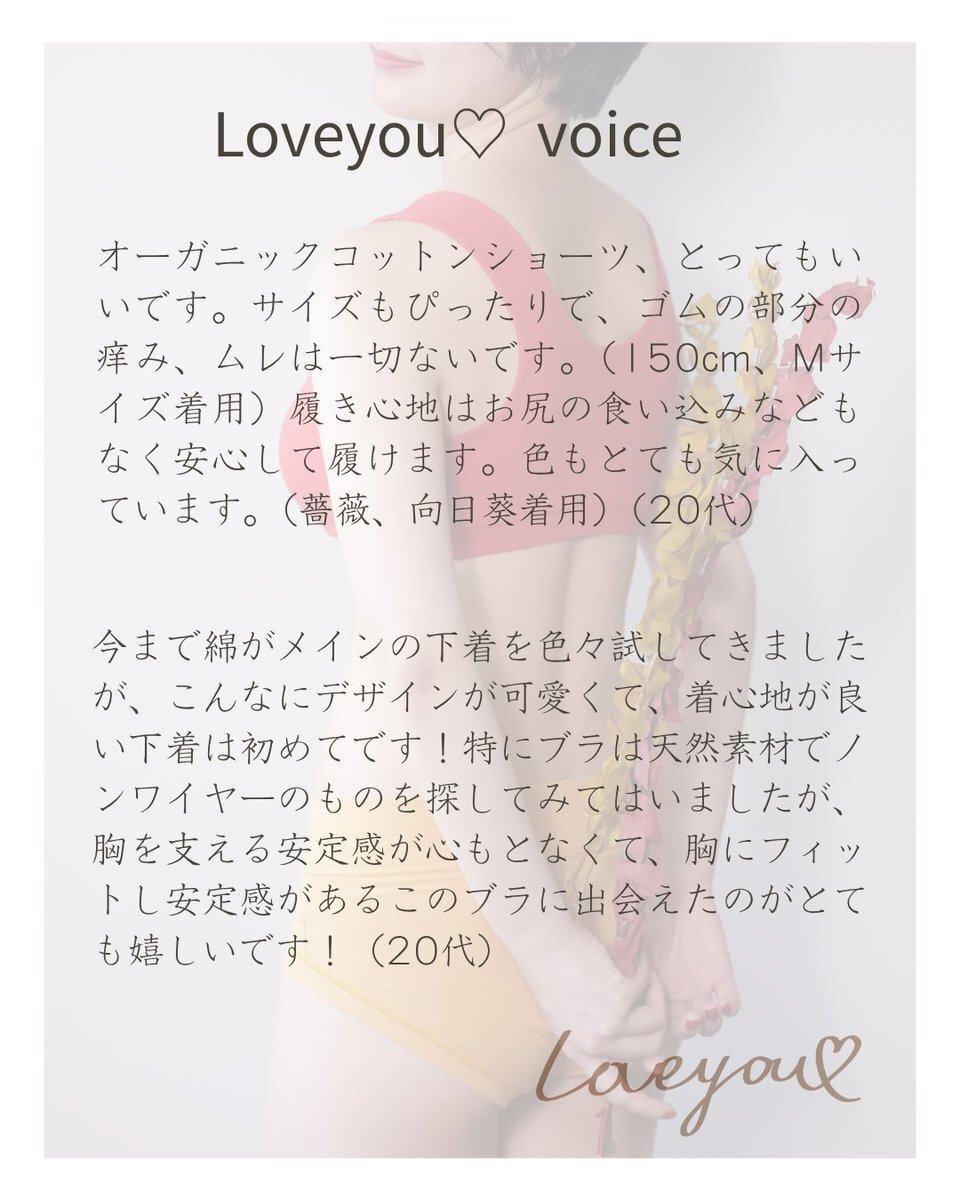 Loveyou♡ voice
オーガニックコットンショーツ、とってもい
いです。サイズもぴったりで、ゴムの部分の
痒み、ムレは一切ないです。（150cm、Mサ
イズ着用）履き心地はお尻の食い込みなども
なく安心して履けます。色もとても気に入っ
ています。（薔薇、向日葵着用）（20代）
今まで綿がメインの下着を色々試してきました
が、こんなにデザインが可愛くて、着心地が良
い下着は初めてです！特にブラは天然素材でノ
ンワイヤーのものを探してみてはいましたが、
胸を支える安定感が心もとなくて、胸にフィッ
トし安定感があるこのブラに出会えたのがとて
も嬉しいです！（20代）
Loveyou♡